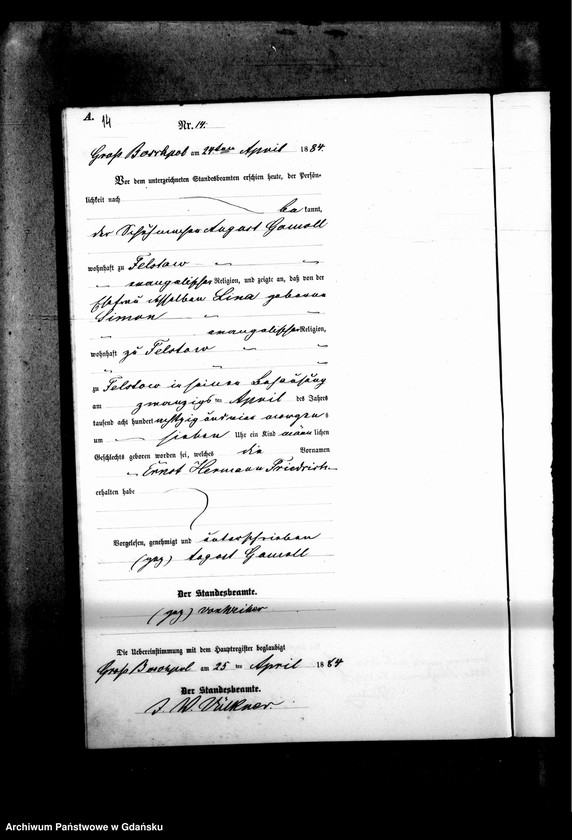 A. 14
Nr. 14.
Groß Boschpol am 24ten April 1884.
Vor dem unterzeichneten Standesbeamten erschien heute, der Persön-
lichkeit nach
bekannt,
der Schuhmacher August Gamoll
wohnhaft zu Felstow
evangelischer Religion, und zeigte an, daß von der
Ehefrau desselben Lina geborene
Simon
evangelischer Religion,
wohnhaft zu Felstow
zu Felstow in seiner Behausung
am zwanzigsten April des Jahres
tausend acht hundert achtzig und vier morgens
um sieben Uhr ein Kind männlichen
Geschlechts geboren worden sei, welches die Vornamen
Ernst Hermann Friedrich
erhalten habe
Vorgelesen, genehmigt und unterschrieben
(gez) August Gamoll
Der Standesbeamte.
(gez)
Die Uebereinstimmung mit dem Hauptregister beglaubigt
Groß Boschpol am 25 ten April 1884
Der Standesbeamte.
Völkner.
Archiwum Państwowe w Gdańsku